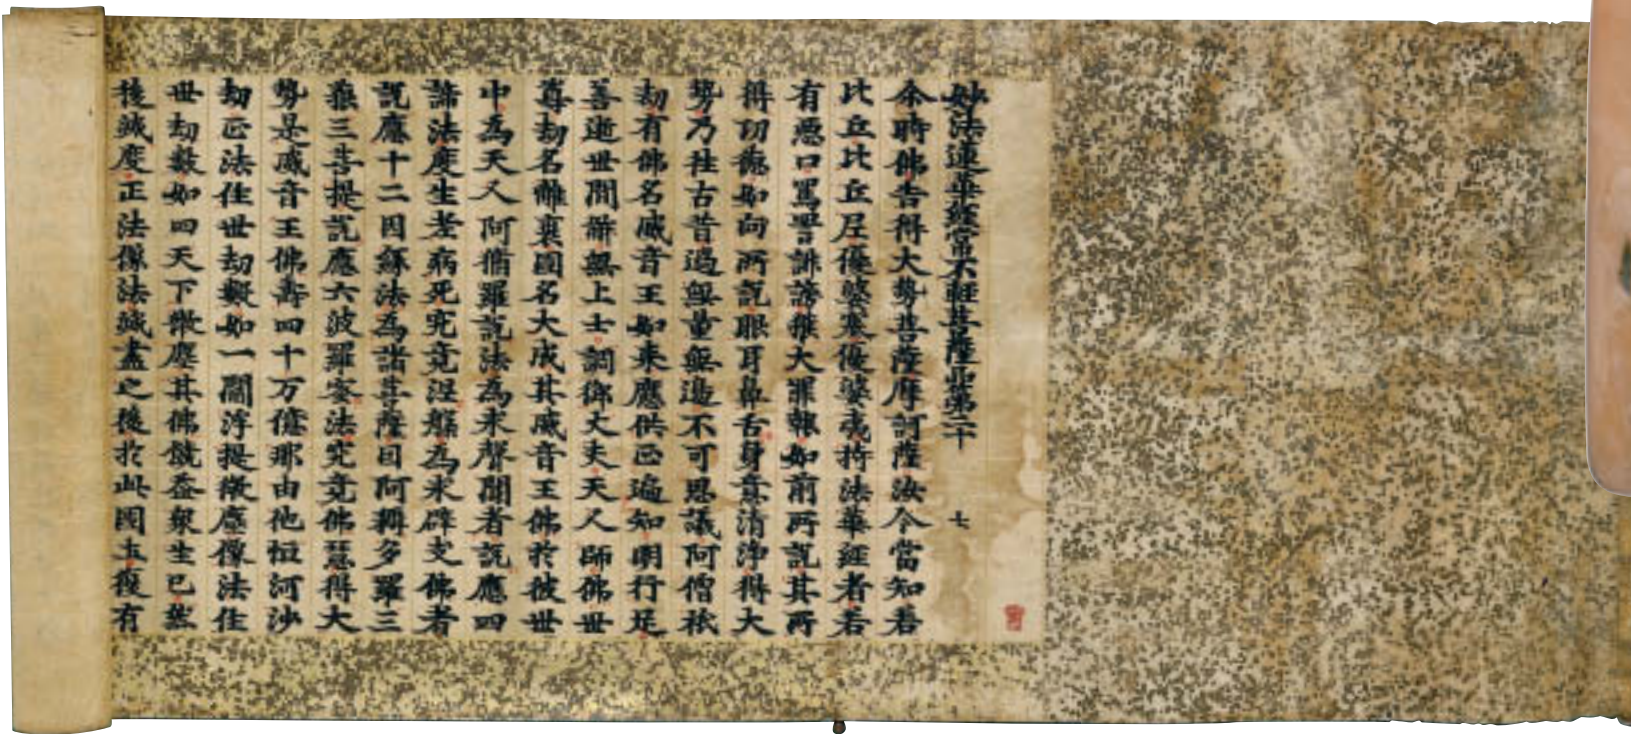 妙法蓮華經常不輕菩薩品第二十 七
尒時佛告得大勢菩薩摩訶薩汝今當知若
比丘比丘尼優婆塞優婆夷持法華經者若
有惡口罵詈誹謗獲大罪報如前所說其所
得功德如向所說眼耳鼻舌身意清淨得大
勢乃往古昔過無量無邊不可思議阿僧祇
劫有佛名威音王如來應供正遍知明行足
善逝世間解無上士調御丈夫天人師佛世
尊劫名離衰國名大成其威音王佛於彼世
中為天人阿脩羅說法為求聲聞者說應四
諦法度生老病死究竟涅槃為求辟支佛者
說應十二因緣法為諸菩薩因阿耨多羅三
藐三菩提說應六波羅蜜法究竟佛慧得大
勢是威音王佛壽四十万億那由他恒河沙
劫正法住世劫數如一閻浮提微塵像法住
世劫數如四天下微塵其佛饒益衆生已然
後滅度正法像法滅盡之後於此國土復有